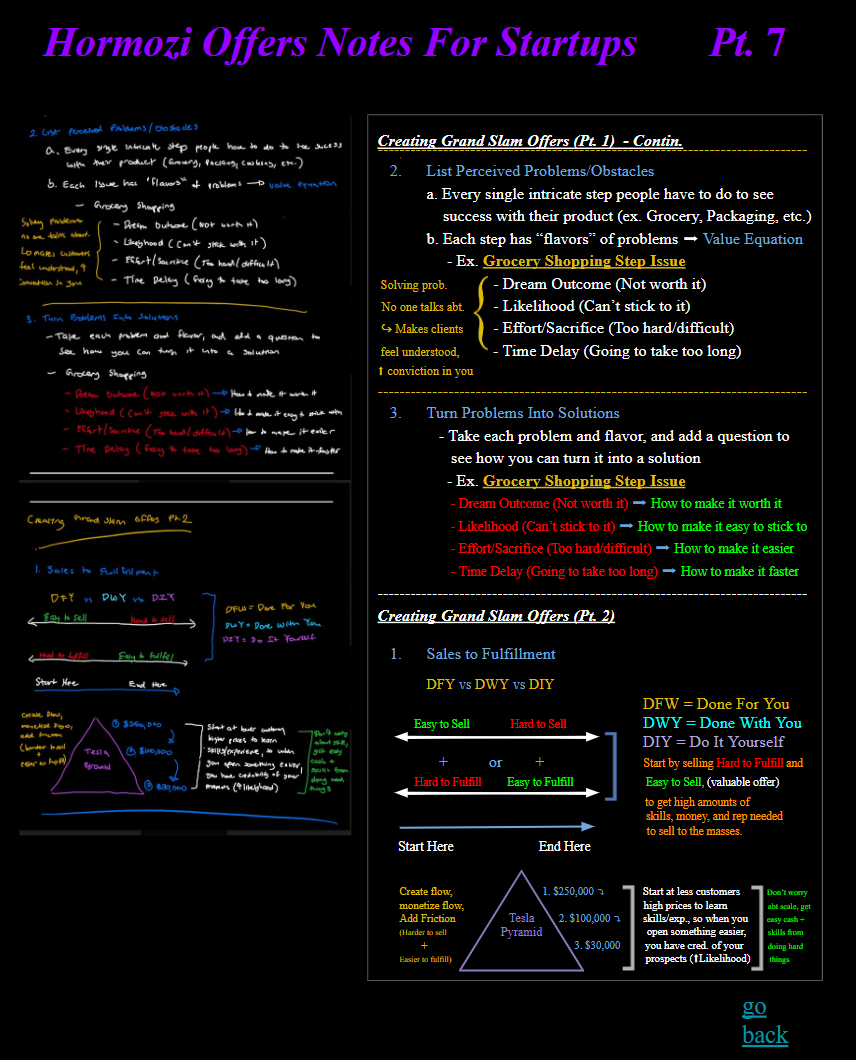 Hormozi Offers Notes For Startups Pt. 7
2. List Perceived Problems/Obstacles
a. Every single intricate step people have to do to see success
with their product (Grocery, Packing, Cooking, etc.)
b. Each Issue has "flavors" of problems → value equation
- Grocery Shopping
- Dream Outcome (Not worth it)
- Likelyhood (Can't stick with it)
- Effort/Sacrifice (Too hard/difficult)
- Time Delay (Going to take too long)
Solving problems
no one talks about.
Lo makes customers
feel understood, ↑
conviction in you
3. Turn Problems Into Solutions
- Take each problem and flavor, and add a question to
see how you can turn it into a solution
- Grocery Shopping
- Dream Outcome (Not worth it) → How to make it worth it
- Likelyhood (Can't stick with it) → How to make it easy to stick with
- Effort/Sacrifice (Too hard/difficult) → How to make it easier
- Time Delay (Going to take too long) → How to make it faster
Creating Grand Slam Offers Pt.2
1. Sales to Fulfillment
DFY vs DWY vs DIY
Easy to Sell Hard to Sell
Hard to fulfill Easy to fulfill
DFW = Done For You
DWY = Done With You
DIY = Do It Yourself
Start Here End Here
Create flow,
monetize flow,
add friction
(harder to sell
+
easier to fulfill)
Tesla
Pyramid
① $250,000
② $100,000
③ $30,000
Start at lower customers
higher prices to learn
skills/experience, so when
you open something easier,
you have credibility of your
prospects (↑ likelyhood)
Don't worry
about scale,
get easy
cash +
skills from
doing hard
things
Creating Grand Slam Offers (Pt. 1) - Contin.
2. List Perceived Problems/Obstacles
a. Every single intricate step people have to do to see
success with their product (ex. Grocery, Packaging, etc.)
b. Each step has “flavors” of problems ➞ Value Equation
- Ex. Grocery Shopping Step Issue
- Dream Outcome (Not worth it)
- Likelihood (Can’t stick to it)
- Effort/Sacrifice (Too hard/difficult)
- Time Delay (Going to take too long)
Solving prob.
No one talks abt.
↪ Makes clients
feel understood,
⬆ conviction in you
3. Turn Problems Into Solutions
- Take each problem and flavor, and add a question to
see how you can turn it into a solution
- Ex. Grocery Shopping Step Issue
- Dream Outcome (Not worth it) ➞ How to make it worth it
- Likelihood (Can’t stick to it) ➞ How to make it easy to stick to
- Effort/Sacrifice (Too hard/difficult) ➞ How to make it easier
- Time Delay (Going to take too long) ➞ How to make it faster
Creating Grand Slam Offers (Pt. 2)
1. Sales to Fulfillment
DFY vs DWY vs DIY
Easy to Sell Hard to Sell
+ or +
Hard to Fulfill Easy to Fulfill
Start Here End Here
DFW = Done For You
DWY = Done With You
DIY = Do It Yourself
Start by selling Hard to Fulfill and
Easy to Sell, (valuable offer)
to get high amounts of
skills, money, and rep needed
to sell to the masses.
Create flow,
monetize flow,
Add Friction
(Harder to sell
+
Easier to fulfill)
Tesla
Pyramid
1. $250,000
2. $100,000
3. $30,000
Start at less customers
high prices to learn
skills/exp., so when you
open something easier,
you have cred. of your
prospects (⬆Likelihood)
Don’t worry
abt scale, get
easy cash +
skills from
doing hard
things
go
back